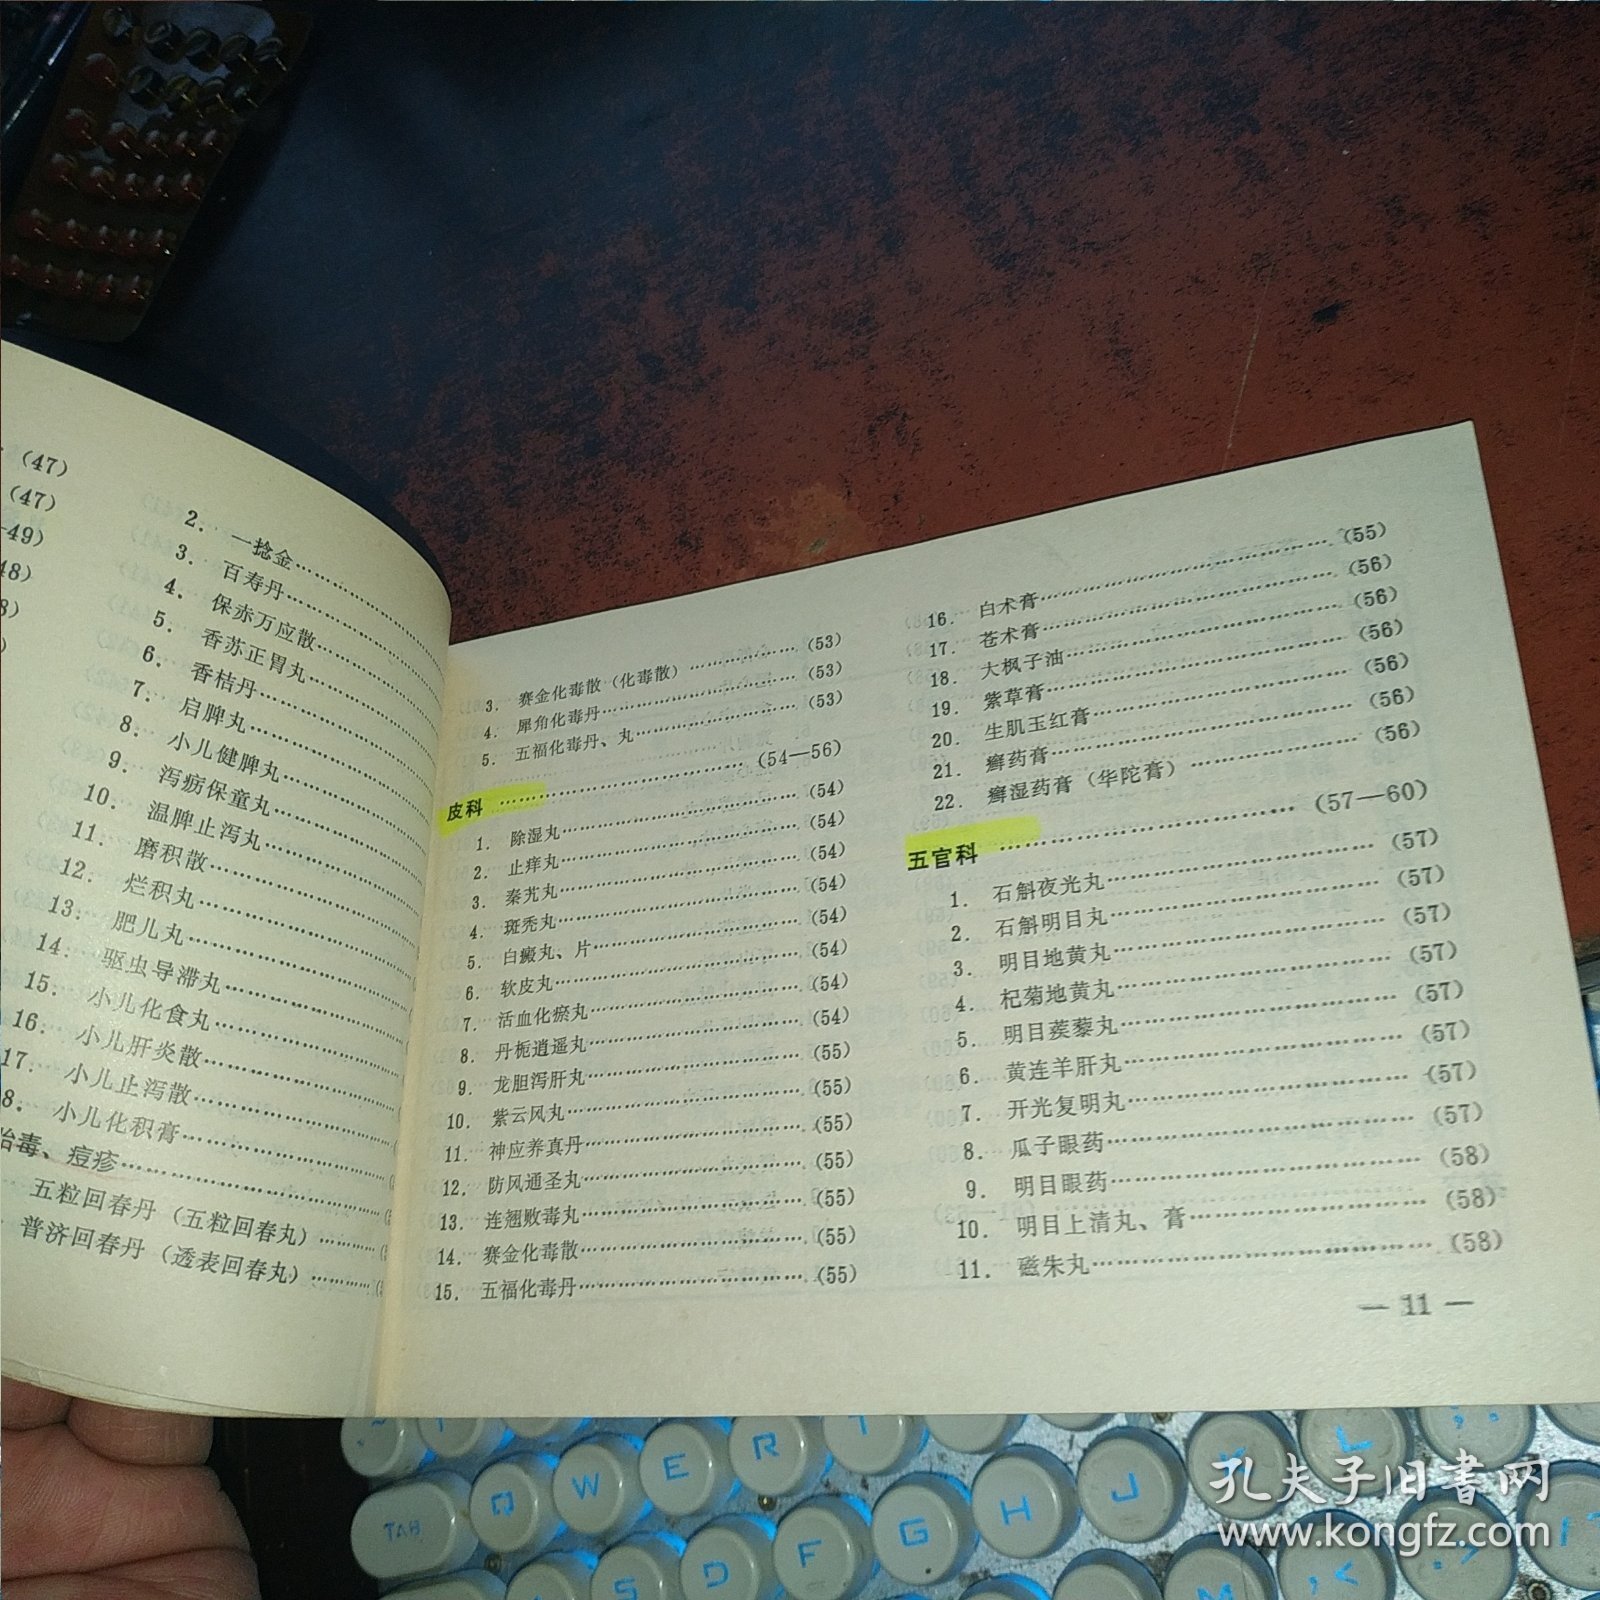 (47)
(47)
—49)
48)
8)
)
2. 一捻金
3. 百寿丹
4. 保赤万应散
5. 香苏正胃丸
6. 香桔丹
7. 启脾丸
8. 小儿健脾丸
9. 泻疠保童丸
10. 温脾止泻丸
11. 磨积散
12. 烂积丸
13. 肥儿丸
14. 驱虫导滞丸
15. 小儿化食丸
16. 小儿肝炎散
17. 小儿止泻散
8. 小儿化积膏
胎毒、痘疹
五粒回春丹（五粒回春丸）
普济回春丹（透表回春丸）
3. 赛金化毒散（化毒散）……(53)
4. 犀角化毒丹……(53)
5. 五福化毒丹、丸……(53)
皮科……(54—56)
1. 除湿丸……(54)
2. 止痒丸……(54)
3. 秦艽丸……(54)
4. 斑秃丸……(54)
5. 白癜丸、片……(54)
6. 软皮丸……(54)
7. 活血化瘀丸……(54)
8. 丹栀逍遥丸……(54)
9. 龙胆泻肝丸……(55)
10. 紫云风丸……(55)
11. 神应养真丹……(55)
12. 防风通圣丸……(55)
13. 连翘败毒丸……(55)
14. 赛金化毒散……(55)
15. 五福化毒丹……(55)
16. 白术膏……(55)
17. 苍术膏……(56)
18. 大枫子油……(56)
19. 紫草膏……(56)
20. 生肌玉红膏……(56)
21. 癣药膏……(56)
22. 癣湿药膏（华陀膏）……(56)
五官科……(57—60)
1. 石斛夜光丸……(57)
2. 石斛明目丸……(57)
3. 明目地黄丸……(57)
4. 杞菊地黄丸……(57)
5. 明目蒺藜丸……(57)
6. 黄连羊肝丸……(57)
7. 开光复明丸……(57)
8. 瓜子眼药……(57)
9. 明目眼药……(58)
10. 明目上清丸、膏……(58)
11. 磁朱丸……(58)
— 11 —
TAB
Q W E R T
S D F G H J L
M
孔夫子旧书网
www.kongfz.com